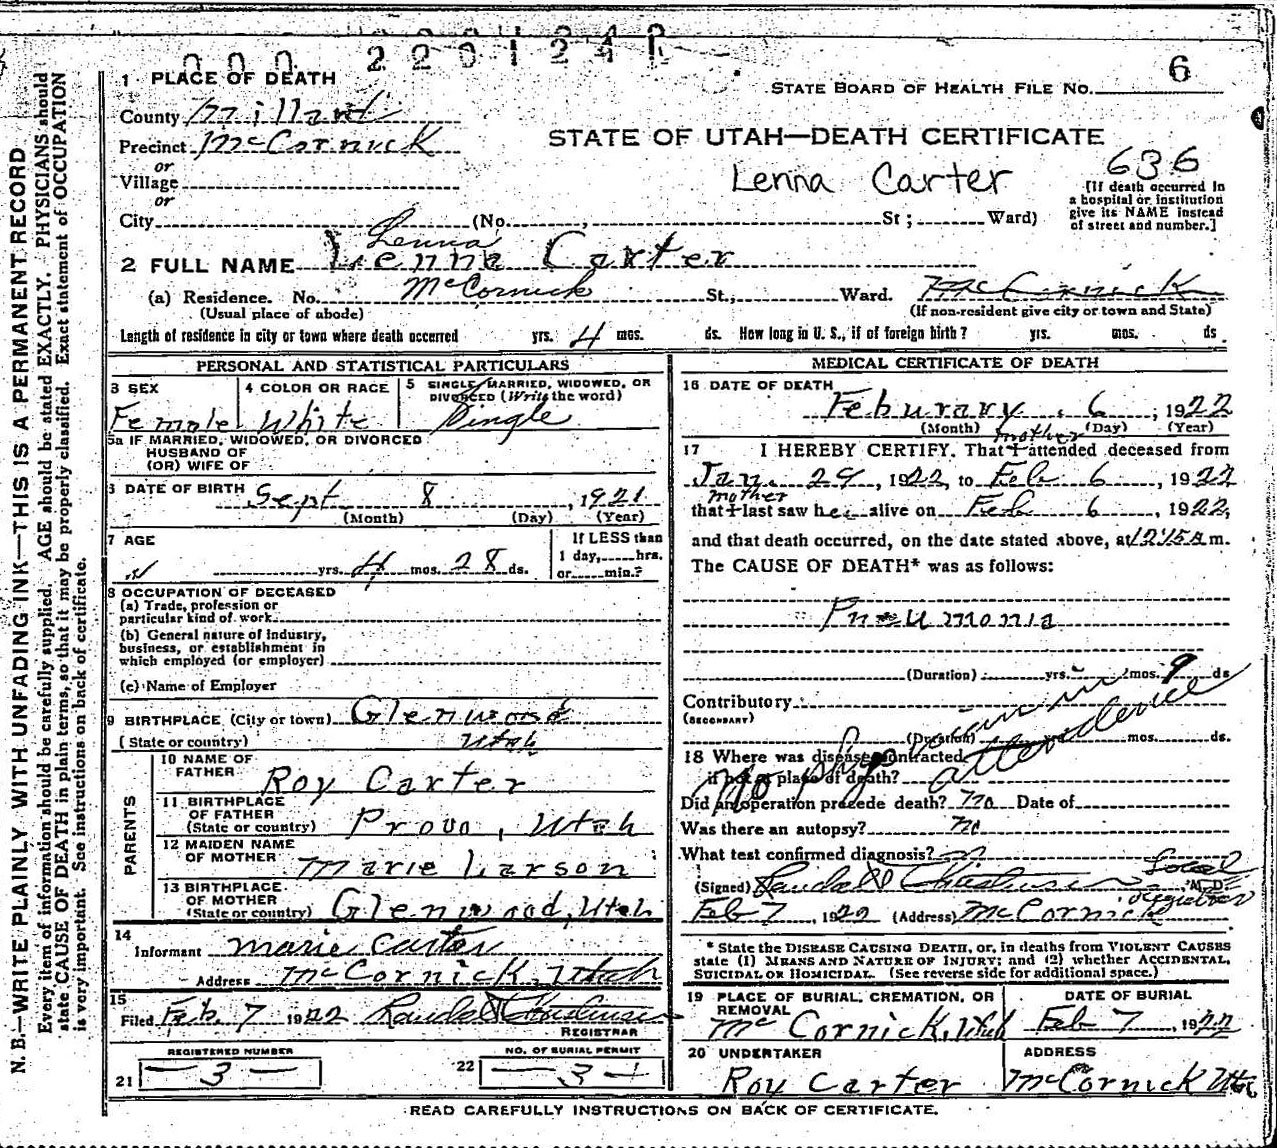 2201248
1 PLACE OF DEATH
STATE BOARD OF HEALTH FILE NO. 6
County Millard
Precinct McCornick
STATE OF UTAH—DEATH CERTIFICATE
or
Village
Lenna Carter
636
or
City (No. , St ; Ward)
[If death occurred in a hospital or institution give its NAME instead of street and number.]
Lenna
2 FULL NAME Lenna Carter
(a) Residence. No. McCornick St., Ward. McCornick
(Usual place of abode) (If non-resident give city or town and State)
Length of residence in city or town where death occurred yrs. 4 mos. ds. How long in U. S., if of foreign birth? yrs. mos. ds
PERSONAL AND STATISTICAL PARTICULARS
3 SEX
Female
4 COLOR OR RACE
White
5 SINGLE, MARRIED, WIDOWED, OR
DIVORCED (Write the word)
Single
5a IF MARRIED, WIDOWED, OR DIVORCED
HUSBAND OF
(OR) WIFE OF
6 DATE OF BIRTH Sept 8, 1921
(Month) (Day) (Year)
7 AGE
yrs. 4 mos. 28 ds.
If LESS than
1 day, hrs.
or min.?
8 OCCUPATION OF DECEASED
(a) Trade, profession or
particular kind of work
(b) General nature of industry,
business, or establishment in
which employed (or employer)
(c) Name of Employer
9 BIRTHPLACE (City or town) Glenwood
(State or country) Utah
PARENTS
10 NAME OF
FATHER Roy Carter
11 BIRTHPLACE
OF FATHER
(State or country) Provo, Utah
12 MAIDEN NAME
OF MOTHER Marie Larson
13 BIRTHPLACE
OF MOTHER
(State or country) Glenwood, Utah
14
Informant Marie Carter
Address McCornick, Utah
15
Filed Feb. 7 1922
REGISTRAR
REGISTERED NUMBER
21 — 3 —
NO. OF BURIAL PERMIT
22 — 3 —
MEDICAL CERTIFICATE OF DEATH
16 DATE OF DEATH
Feburary 6, 1922
(Month) (Day) (Year)
mother
17 I HEREBY CERTIFY, That I attended deceased from
Jan. 29, 1922, to Feb 6, 1922
mother
that I last saw her alive on Feb 6, 1922,
and that death occurred, on the date stated above, at 12:15 a m.
The CAUSE OF DEATH* was as follows:
Pneumonia
(Duration) yrs. mos. 9 ds
Contributory
(SECONDARY)
(Duration) mos. ds.
No physician in
attendence
18 Where was disease contracted
if not at place of death?
Did an operation precede death? no Date of
Was there an autopsy? no
What test confirmed diagnosis?
(Signed) M.D. Local
Registrar
Feb 7, 1922 (Address) McCornick
* State the DISEASE CAUSING DEATH, or, in deaths from VIOLENT CAUSES
state (1) MEANS AND NATURE OF INJURY; and (2) whether ACCIDENTAL,
SUICIDAL OR HOMICIDAL. (See reverse side for additional space.)
19 PLACE OF BURIAL, CREMATION, OR
REMOVAL
McCornick, Utah
DATE OF BURIAL
Feb 7, 1922
20 UNDERTAKER
Roy Carter
ADDRESS
McCornick Utah
READ CAREFULLY INSTRUCTIONS ON BACK OF CERTIFICATE.
N. B.—WRITE PLAINLY WITH UNFADING INK—THIS IS A PERMANENT RECORD
Every item of information should be carefully supplied. AGE should be stated EXACTLY. PHYSICIANS should
state CAUSE OF DEATH in plain terms, so that it may be properly classified. Exact statement of OCCUPATION
is very important. See instructions on back of certificate.